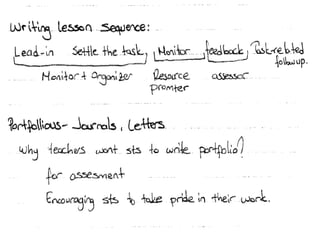 Writing lesson sequence:
Lead-in Settle the task, Monitor, feedback, Task-related
followup.
Monitor + Organizer Resource assessor
promter
Portfollious - Journals, Letters
Why teachers wont sts to write portfolio?
for assesment
Encouraging sts to take pride in their work.